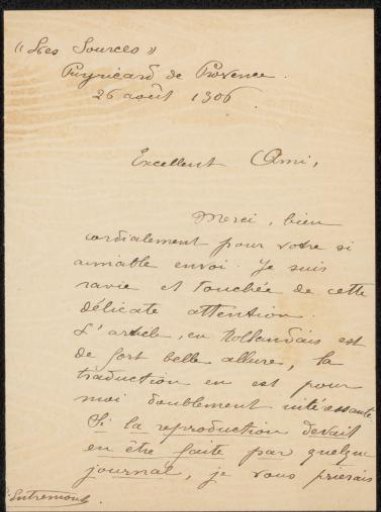 « Les Sources »
Puyricard de Provence.
26 août 1906.
Excellent Ami,
Merci, bien
cordialement pour votre si
aimable envoi. Je suis
ravie et touchée de cette
délicate attention.
L'article, en Hollandais est
de fort belle allure, la
traduction en est pour
moi doublement intéressante.
Si la reproduction devait
en être faite par quelque
journal, je vous prierais
Entremont.